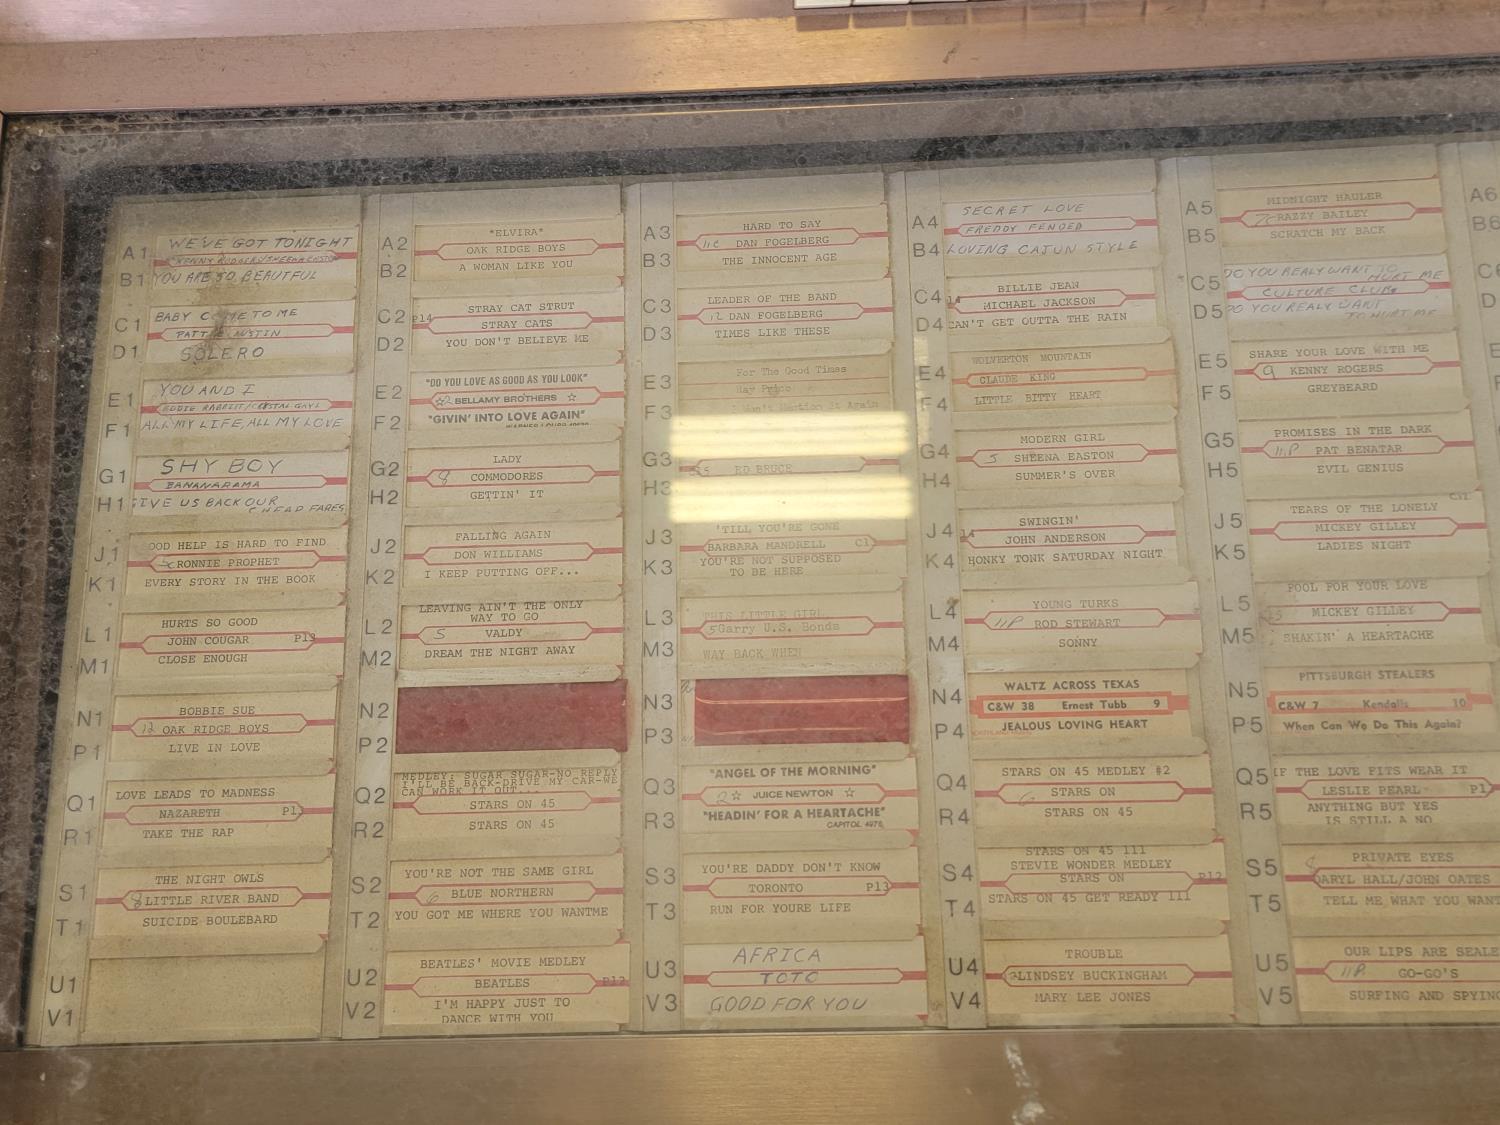 A1
WE'VE GOT TONIGHT
KENNY ROGERS/SHEENA EASTON
B1
YOU ARE SO BEAUTIFUL
C1
BABY COME TO ME
PATTI AUSTIN
D1
SOLERO
E1
YOU AND I
EDDIE RABBIT/CRYSTAL GAYL
F1
ALL MY LIFE, ALL MY LOVE
G1
SHY BOY
BANANARAMA
H1
GIVE US BACK OUR
CHEAP FARES
J1
OOD HELP IS HARD TO FIND
RONNIE PROPHET
K1
EVERY STORY IN THE BOOK
L1
HURTS SO GOOD
JOHN COUGAR P13
M1
CLOSE ENOUGH
N1
BOBBIE SUE
12 OAK RIDGE BOYS
P1
LIVE IN LOVE
Q1
LOVE LEADS TO MADNESS
NAZARETH P13
R1
TAKE THE RAP
S1
THE NIGHT OWLS
8 LITTLE RIVER BAND
T1
SUICIDE BOULEBARD
U1
V1
A2
*ELVIRA*
OAK RIDGE BOYS
B2
A WOMAN LIKE YOU
C2
STRAY CAT STRUT
P14 STRAY CATS
D2
YOU DON'T BELIEVE ME
E2
"DO YOU LOVE AS GOOD AS YOU LOOK"
☆ BELLAMY BROTHERS ☆
F2
"GIVIN' INTO LOVE AGAIN"
G2
LADY
8 COMMODORES
H2
GETTIN' IT
J2
FALLING AGAIN
DON WILLIAMS
K2
I KEEP PUTTING OFF...
L2
LEAVING AIN'T THE ONLY
WAY TO GO
5 VALDY
M2
DREAM THE NIGHT AWAY
N2
P2
Q2
MEDLEY: SUGAR SUGAR-NO REPLY
I'LL BE BACK-DRIVE MY CAR-WE
CAN WORK IT OUT...
STARS ON 45
R2
STARS ON 45
S2
YOU'RE NOT THE SAME GIRL
6 BLUE NORTHERN
T2
YOU GOT ME WHERE YOU WANTME
U2
BEATLES' MOVIE MEDLEY
BEATLES P12
V2
I'M HAPPY JUST TO
DANCE WITH YOU
A3
HARD TO SAY
11C DAN FOGELBERG
B3
THE INNOCENT AGE
C3
LEADER OF THE BAND
12 DAN FOGELBERG
D3
TIMES LIKE THESE
E3
For The Good Times
Ray Price
F3
Won't Mention It Again
G3
ED BRUCE
H3
J3
'TILL YOU'RE GONE
BARBARA MANDRELL C1
K3
YOU'RE NOT SUPPOSED
TO BE HERE
L3
THIS LITTLE GIRL
5 Garry U.S. Bonds
M3
WAY BACK WHEN
N3
P3
Q3
"ANGEL OF THE MORNING"
2 ☆ JUICE NEWTON ☆
R3
"HEADIN' FOR A HEARTACHE"
CAPITOL 4976
S3
YOU'RE DADDY DON'T KNOW
TORONTO P13
T3
RUN FOR YOURE LIFE
U3
AFRICA
TOTO
V3
GOOD FOR YOU
A4
SECRET LOVE
FREDDY FENDED
B4
LOVING CAJUN STYLE
C4
BILLIE JEAN
14 MICHAEL JACKSON
D4
CAN'T GET OUTTA THE RAIN
E4
WOLVERTON MOUNTAIN
CLAUDE KING
F4
LITTLE BITTY HEART
G4
MODERN GIRL
5 SHEENA EASTON
H4
SUMMER'S OVER
J4
SWINGIN'
14 JOHN ANDERSON
K4
HONKY TONK SATURDAY NIGHT
L4
YOUNG TURKS
11P ROD STEWART
M4
SONNY
N4
WALTZ ACROSS TEXAS
C&W 38 Ernest Tubb 9
P4
JEALOUS LOVING HEART
Q4
STARS ON 45 MEDLEY #2
6 STARS ON
R4
STARS ON 45
S4
STARS ON 45 111
STEVIE WONDER MEDLEY
STARS ON P12
T4
STARS ON 45 GET READY 111
U4
TROUBLE
LINDSEY BUCKINGHAM
V4
MARY LEE JONES
A5
MIDNIGHT HAULER
RAZZY BAILEY
B5
SCRATCH MY BACK
C5
DO YOU REALY WANT TO
HURT ME
CULTURE CLUB
D5
DO YOU REALY WANT
TO HURT ME
E5
SHARE YOUR LOVE WITH ME
9 KENNY ROGERS
F5
GREYBEARD
G5
PROMISES IN THE DARK
11P PAT BENATAR
H5
EVIL GENIUS
J5
TEARS OF THE LONELY
MICKEY GILLEY
K5
LADIES NIGHT
L5
FOOL FOR YOUR LOVE
MICKEY GILLEY
M5
SHAKIN' A HEARTACHE
N5
PITTSBURGH STEALERS
C&W 7 Kendalls 10
P5
When Can We Do This Again?
Q5
IF THE LOVE FITS WEAR IT
LESLIE PEARL P1
R5
ANYTHING BUT YES
IS STILL A NO
S5
PRIVATE EYES
DARYL HALL/JOHN OATES
T5
TELL ME WHAT YOU WANT
U5
OUR LIPS ARE SEALE
11P GO-GO'S
V5
SURFING AND SPYING
A6
B6